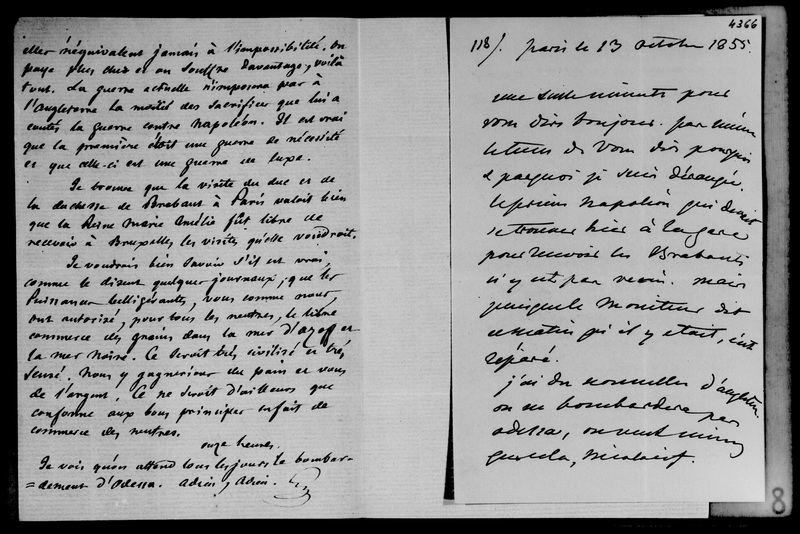 aller n'équivalent jamais à l'impossibilité. On
paye plus cher et on souffre davantage, voilà
tout. La guerre actuelle n'impose pas à
l'Angleterre la moitié des sacrifices que lui a
coûtés la guerre contre Napoléon. Il est vrai
que la première était une guerre de nécessité
et que celle-ci est une guerre de luxe.
Je trouve que la visite du duc et de
la duchesse de Brabant à Paris valait bien
que la Reine Marie Amélie fût libre de
recevoir à Bruxelles les visites qu'elle voudroit.
Je voudrais bien savoir s'il est vrai,
comme le disent quelques journaux, que les
Puissances belligérantes, vous comme nous,
ont autorisé, pour tous les neutres, le libre
commerce des grains dans la mer d'azoff et
la mer noire. Ce seroit très civilisé et très
sensé. Nous y gagnerions du pain et vous
de l'argent. Ce ne seroit d'ailleurs que
conforme aux bons principes en fait de
commerce des neutres.
onze heures.
Je vois qu'on attend tous les jours le bombar-
=dement d'Odessa. Adieu, Adieu.
4366
118/. paris le 13 octobre 1855.
une seule minute pour
vous dire bonjour. pas même
le tems de vous dire pourquoi
& par quoi je suis dérangée.
le prince napoléon qui devait
se trouver hier à la gare
pour recevoir les Brabants
n'y est pas venu. mais
puisque le Moniteur dit
ce matin qu'il y était, c'est
réparé.
j'ai des nouvelles d'angleterre.
on ne bombardera pas
odessa, on veut